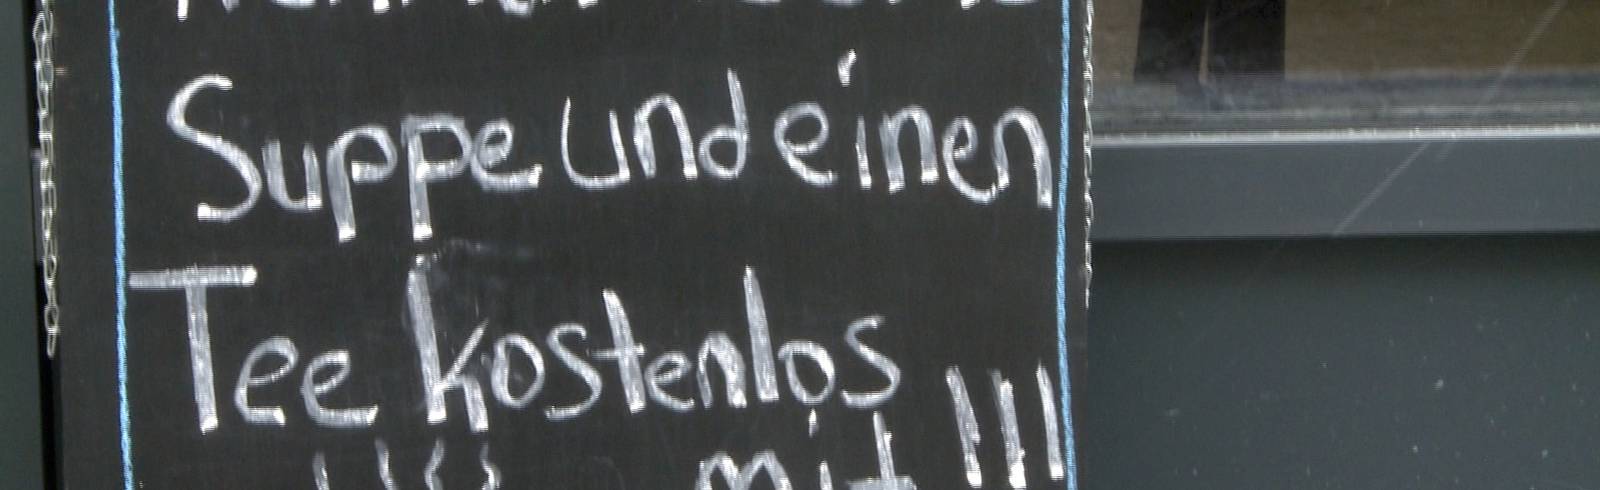 Suppe und einen
Tee kostenlos
mit !!!